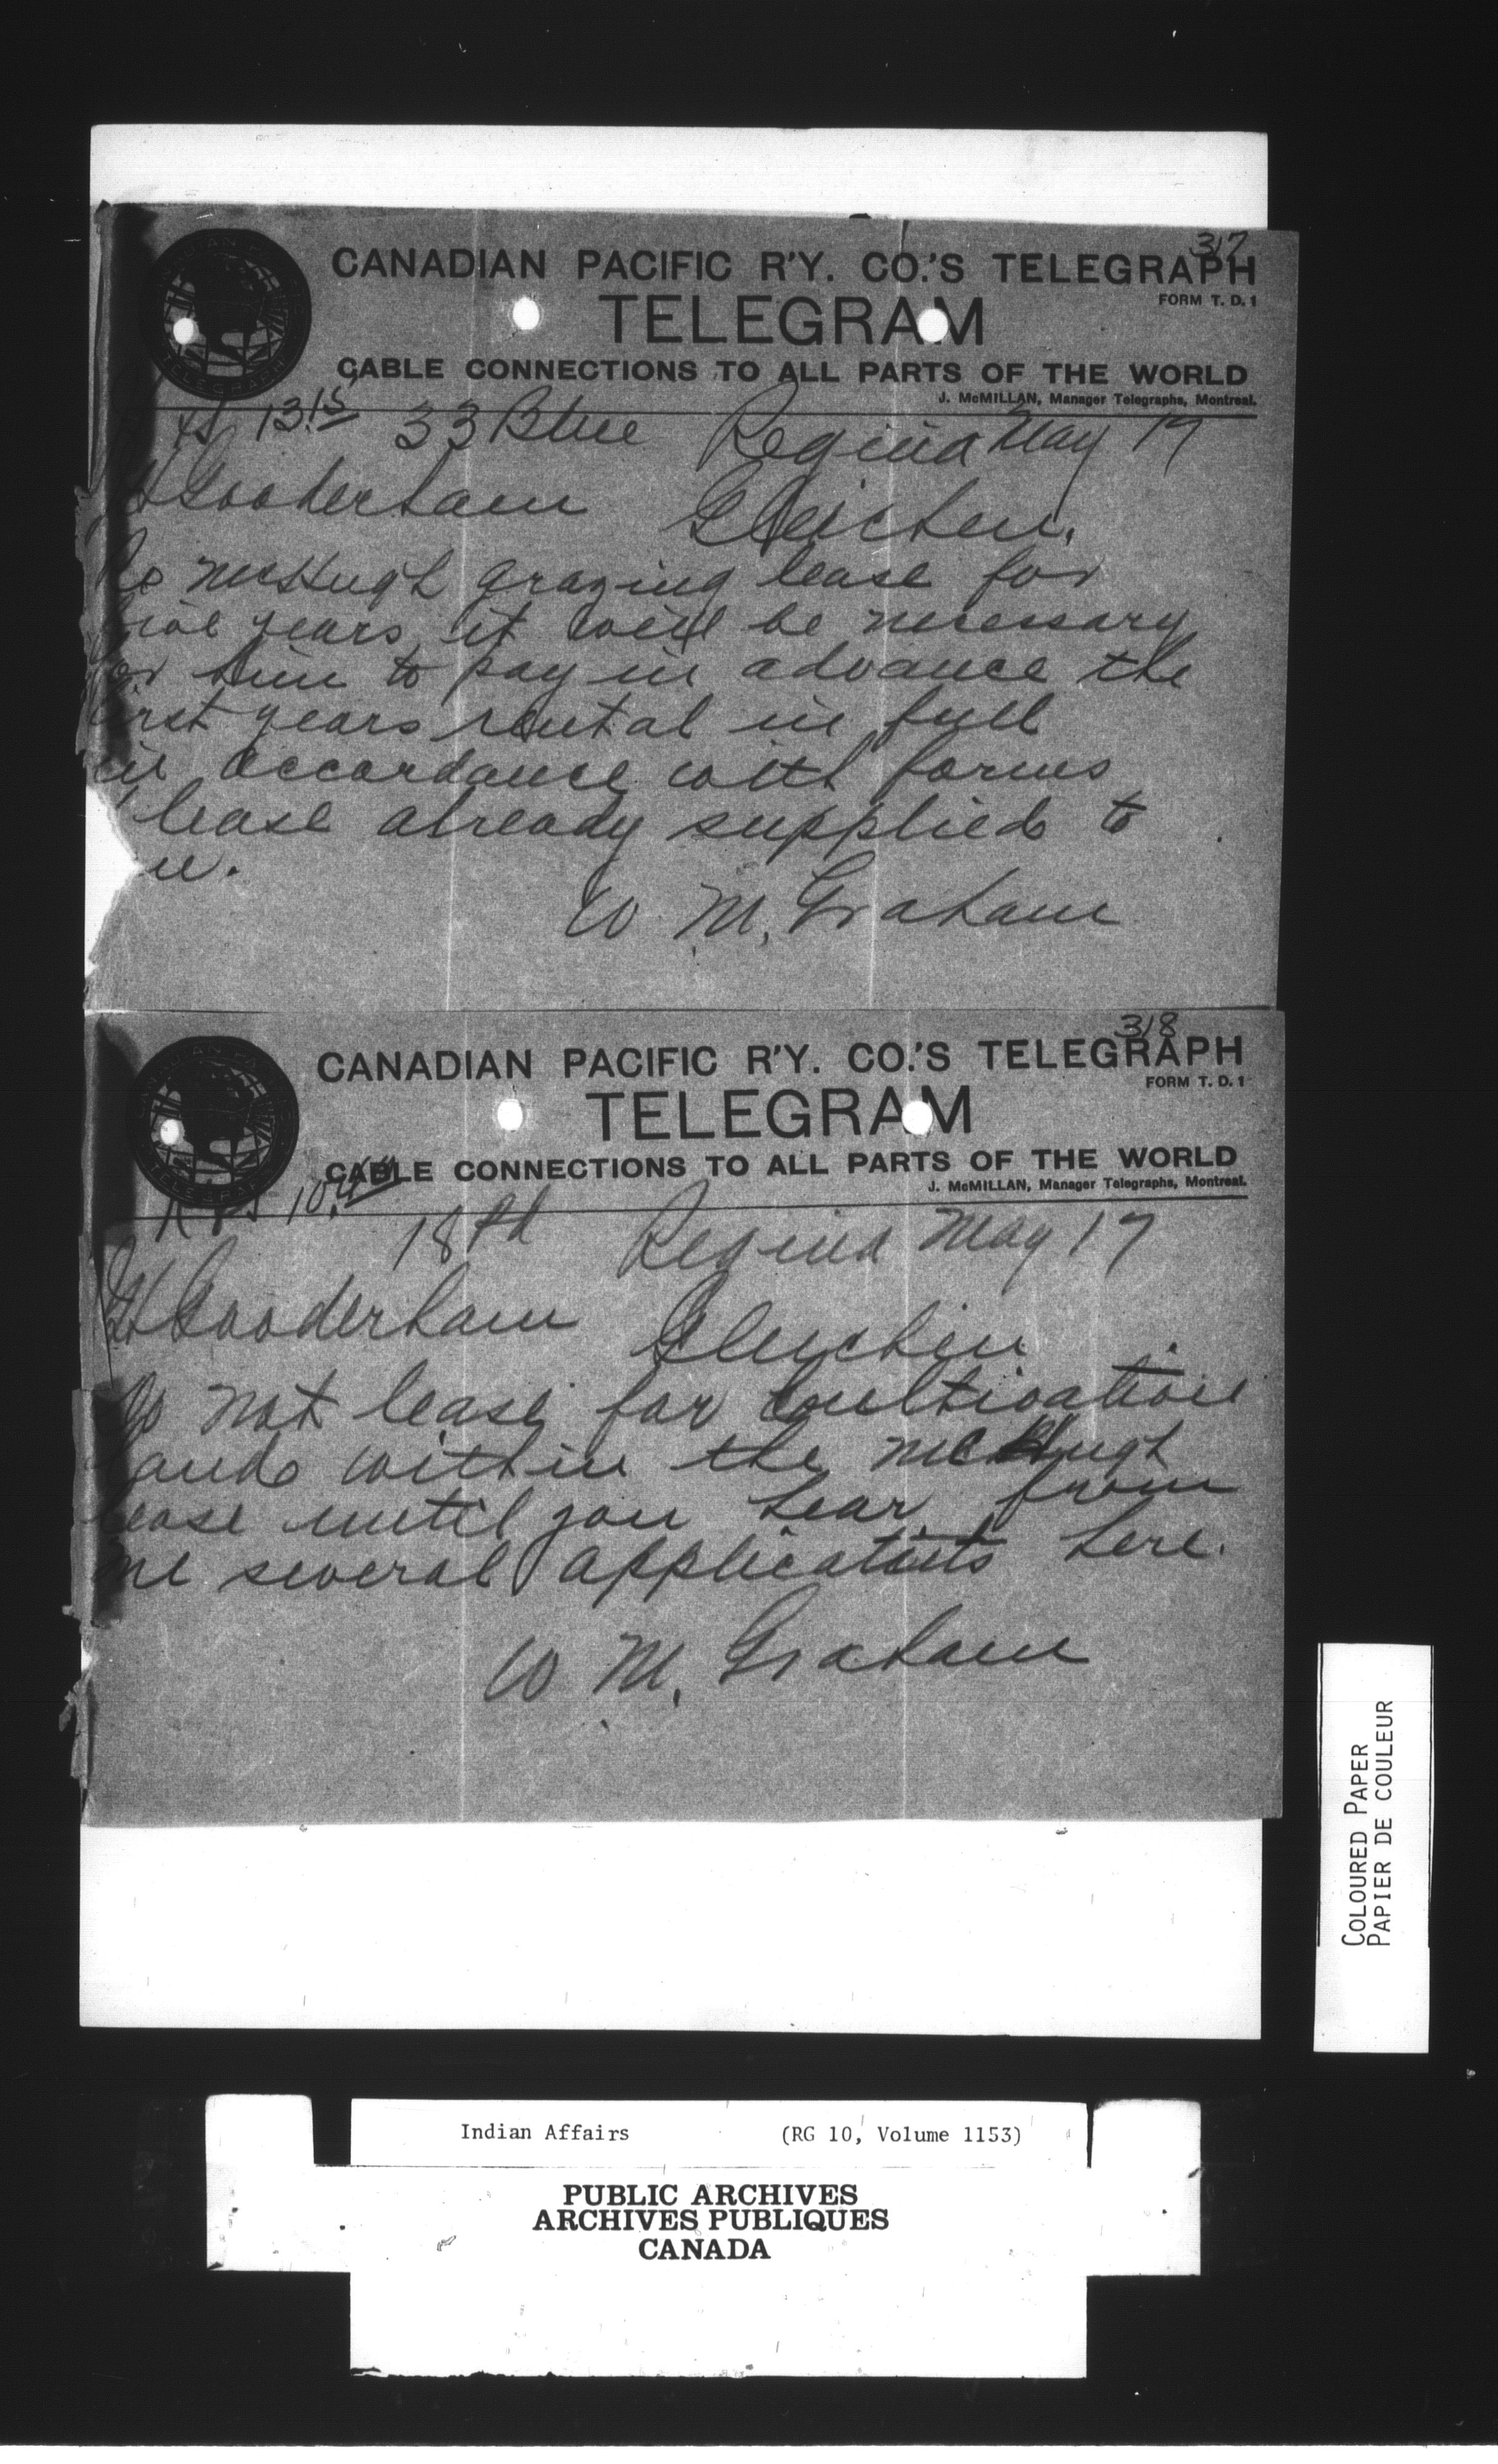 317
CANADIAN PACIFIC R'Y. CO.'S TELEGRAPH
FORM T. D. 1
TELEGRAM
CABLE CONNECTIONS TO ALL PARTS OF THE WORLD
J. McMILLAN, Manager Telegraphs, Montreal.
13.15 33 Blue Regina May 17
H Gooderham Gleichen.
Re McHugh grazing lease for
five years it will be necessary
for him to pay in advance the
first years rental in full
in accordance with forms
lease already supplied to
u.
W. M. Graham
318
CANADIAN PACIFIC R'Y. CO.'S TELEGRAPH
FORM T. D. 1
TELEGRAM
CABLE CONNECTIONS TO ALL PARTS OF THE WORLD
J. McMILLAN, Manager Telegraphs, Montreal.
18 Pd Regina May 17
JH Gooderham Gleichen
Do not lease for cultivation
lands within the McHugh
lease until you hear from
me several applicants here.
W M. Graham
COLOURED PAPER
PAPIER DE COULEUR
Indian Affairs (RG 10, Volume 1153)
PUBLIC ARCHIVES
ARCHIVES PUBLIQUES
CANADA